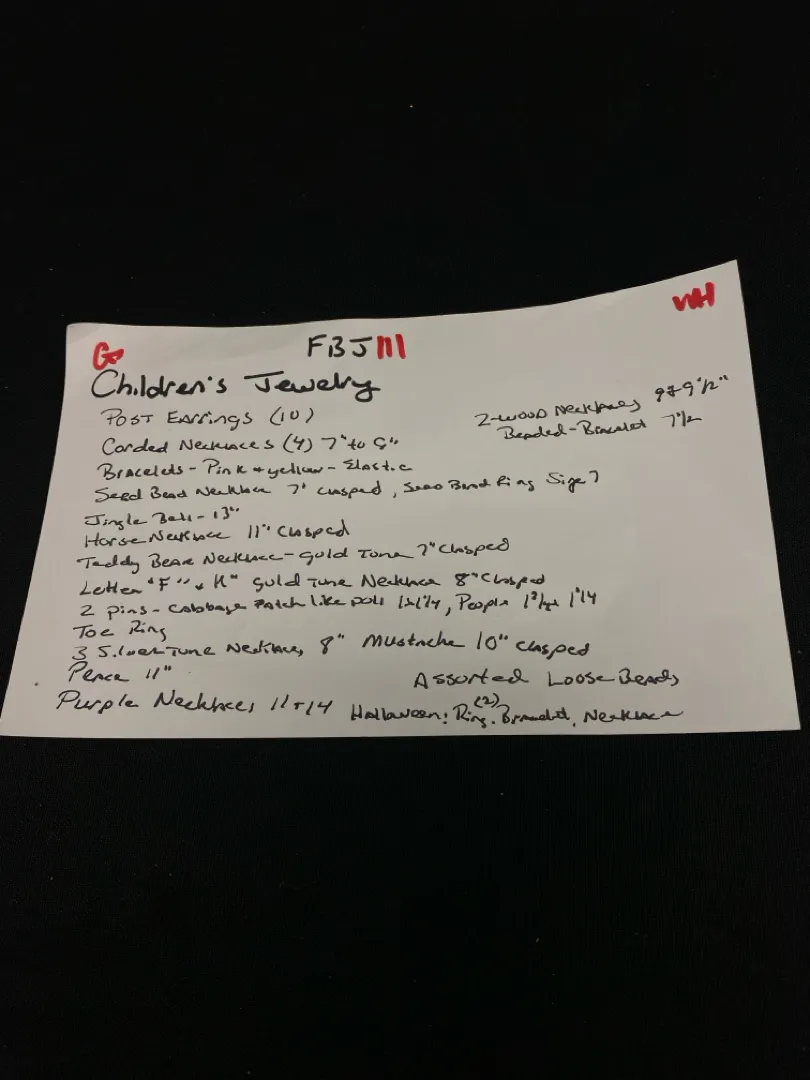 G
WH
FBJ111
Children's Jewelry
Post Earrings (10)
Corded Necklaces (4) 7" to 9"
Bracelets - Pink + yellow - Elastic
Seed Bead Necklace 7" clasped, Seed Bead Ring Size 7
Jingle Bell - 13"
Horse Necklace 11" clasped
Teddy Bear Necklace - gold Tone 7" clasped
Letter "F" + H" gold Tone Necklace 8" clasped
2 pins - Cabbage Patch like Doll 1x1 1/4, People 1 1/4
Toe Ring
3 Silver Tone Necklaces 8" Mustache 10" clasped
Peace 11"
Purple Necklaces 11 + 14
2-wood Necklaces 9+9 1/2"
Beaded-Bracelet 7 1/2
Assorted Loose Beads
Halloween: Ring (2), Bracelet, Necklace